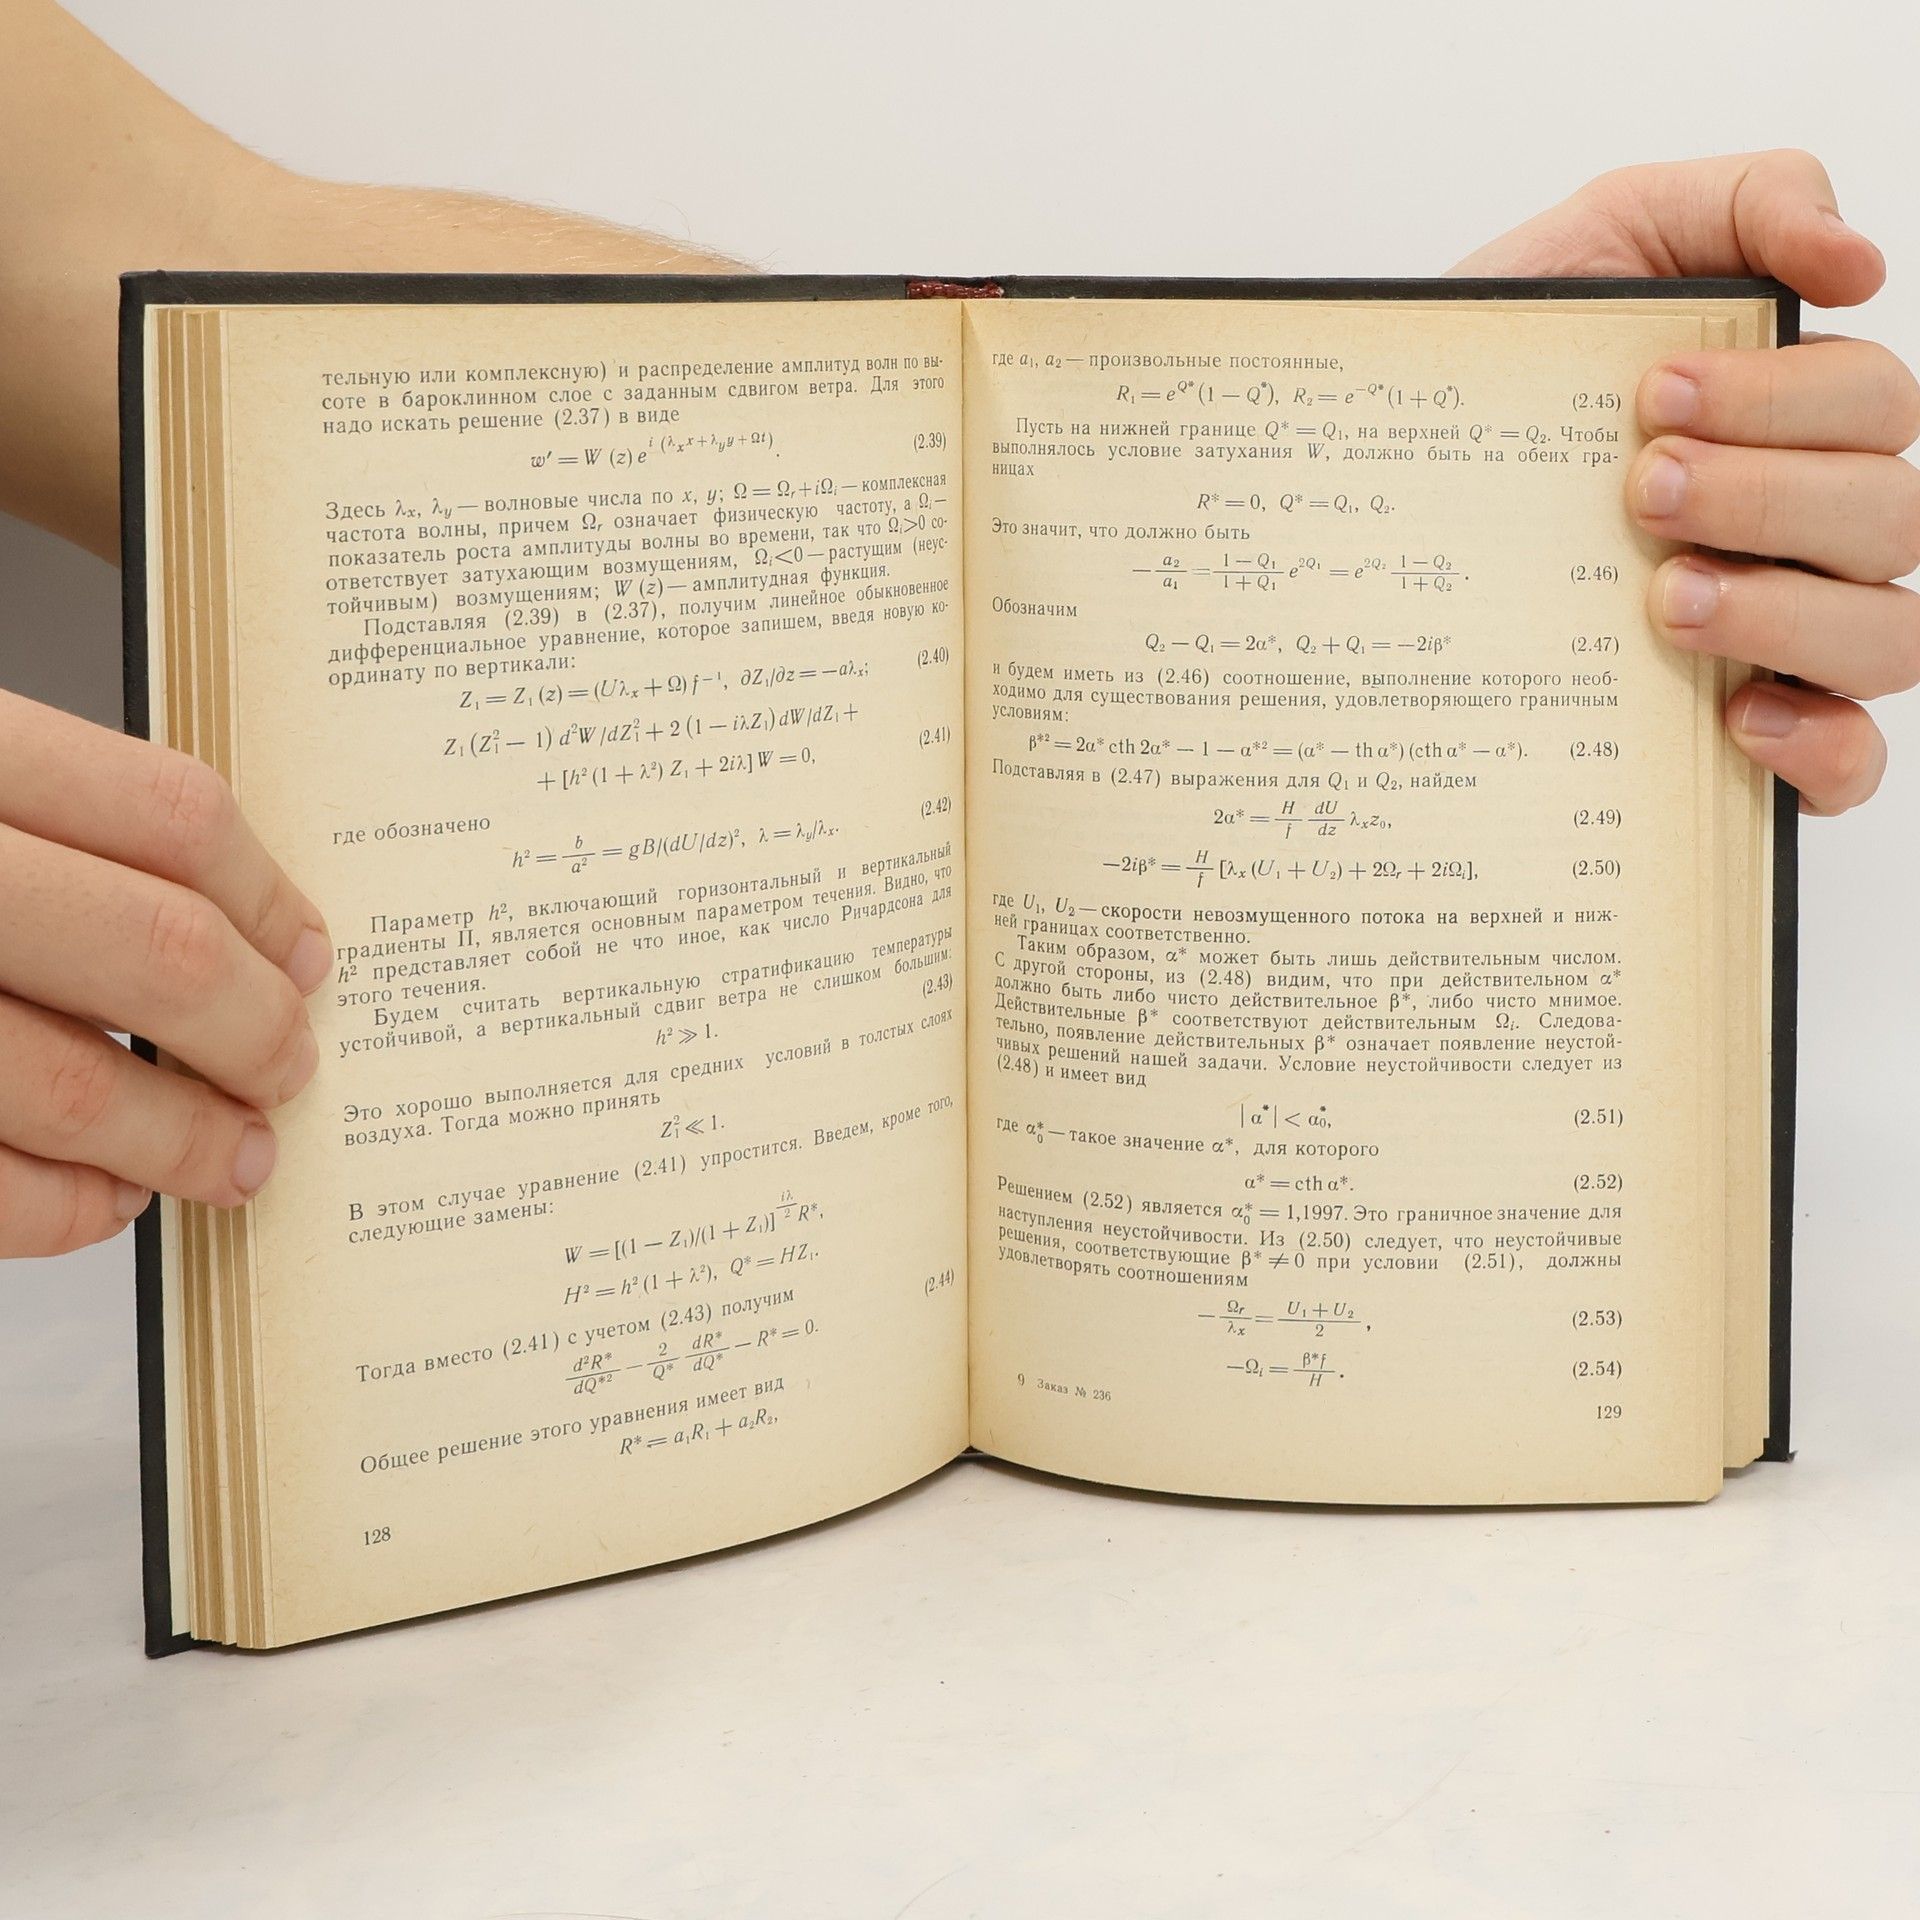 тельную или комплексную) и распределение амплитуд волн по вы-
соте в бароклинном слое с заданным сдвигом ветра. Для этого
надо искать решение (2.37) в виде
w′ = W (z) e^{i (λ_x x + λ_y y + Ωt)}. (2.39)
Здесь λ_x, λ_y — волновые числа по x, y; Ω = Ω_r + iΩ_i — комплексная
частота волны, причем Ω_r означает физическую частоту, а Ω_i —
показатель роста амплитуды волны во времени, так что Ω_i > 0 со-
ответствует затухающим возмущениям, Ω_i < 0 — растущим (неус-
тойчивым) возмущениям; W (z) — амплитудная функция.
Подставляя (2.39) в (2.37), получим линейное обыкновенное
дифференциальное уравнение, которое запишем, введя новую ко-
ординату по вертикали:
Z₁ = Z₁ (z) = (Uλ_x + Ω) f⁻¹, ∂Z₁/∂z = −aλ_x; (2.40)
Z₁ (Z₁² − 1) d²W/dZ₁² + 2 (1 − iλZ₁) dW/dZ₁ +
+ [h² (1 + λ²) Z₁ + 2iλ] W = 0, (2.41)
где обозначено
h² = b/a² = gB/(dU/dz)², λ = λ_y/λ_x. (2.42)
Параметр h², включающий горизонтальный и вертикальный
градиенты П, является основным параметром течения. Видно, что
h² представляет собой не что иное, как число Ричардсона для
этого течения.
Будем считать вертикальную стратификацию температуры
устойчивой, а вертикальный сдвиг ветра не слишком большим:
h² ≫ 1. (2.43)
Это хорошо выполняется для средних условий в толстых слоях
воздуха. Тогда можно принять
Z₁² ≪ 1.
В этом случае уравнение (2.41) упростится. Введем, кроме того,
следующие замены:
W = [(1 − Z₁)/(1 + Z₁)]^{iλ/2} R*,
H² = h² (1 + λ²), Q* = HZ₁. (2.44)
Тогда вместо (2.41) с учетом (2.43) получим
d²R*/dQ*² − 2/Q* dR*/dQ* − R* = 0.
Общее решение этого уравнения имеет вид
R* = a₁R₁ + a₂R₂,
128
где a₁, a₂ — произвольные постоянные,
R₁ = e^{Q*} (1 − Q*), R₂ = e^{−Q*} (1 + Q*). (2.45)
Пусть на нижней границе Q* = Q₁, на верхней Q* = Q₂. Чтобы
выполнялось условие затухания W, должно быть на обеих гра-
ницах
R* = 0, Q* = Q₁, Q₂.
Это значит, что должно быть
− a₂/a₁ = (1 − Q₁)/(1 + Q₁) e^{2Q₁} = e^{2Q₂} (1 − Q₂)/(1 + Q₂). (2.46)
Обозначим
Q₂ − Q₁ = 2α*, Q₂ + Q₁ = −2iβ* (2.47)
и будем иметь из (2.46) соотношение, выполнение которого необ-
ходимо для существования решения, удовлетворяющего граничным
условиям:
β*² = 2α* cth 2α* − 1 − α*² = (α* − th α*) (cth α* − α*). (2.48)
Подставляя в (2.47) выражения для Q₁ и Q₂, найдем
2α* = H/f dU/dz λ_x z₀, (2.49)
−2iβ* = H/f [λ_x (U₁ + U₂) + 2Ω_r + 2iΩ_i], (2.50)
где U₁, U₂ — скорости невозмущенного потока на верхней и ниж-
ней границах соответственно.
Таким образом, α* может быть лишь действительным числом.
С другой стороны, из (2.48) видим, что при действительном α*
должно быть либо чисто действительное β*, либо чисто мнимое.
Действительные β* соответствуют действительным Ω_i. Следова-
тельно, появление действительных β* означает появление неустой-
чивых решений нашей задачи. Условие неустойчивости следует из
(2.48) и имеет вид
| α* | < α₀*, (2.51)
где α₀* — такое значение α*, для которого
α* = cth α*. (2.52)
Решением (2.52) является α₀* = 1,1997. Это граничное значение для
наступления неустойчивости. Из (2.50) следует, что неустойчивые
решения, соответствующие β* ≠ 0 при условии (2.51), должны
удовлетворять соотношениям
− Ω_r/λ_x = (U₁ + U₂)/2, (2.53)
−Ω_i = β*f/H. (2.54)
9 Заказ № 236
129